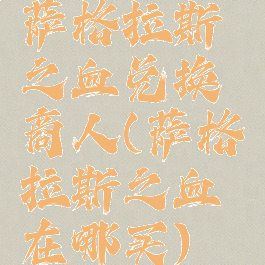 萨格拉斯
之血兑换
商人(萨格
拉斯之血
在哪买)